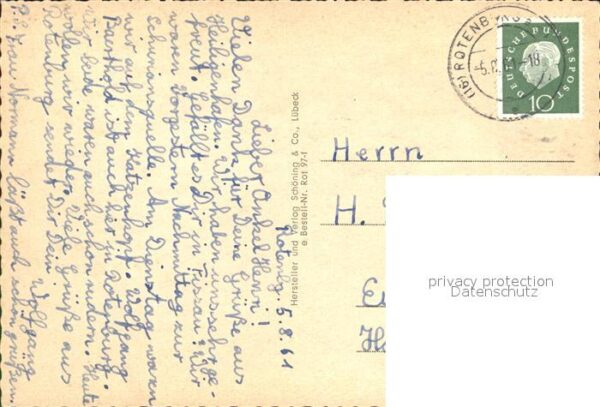 Rotenbg. 5.8.61
Lieber Onkel Henri!
Vielen Dank für Deine Grüße aus
Heiligenhafen. Wir haben uns sehr ge-
freut. Gefällt es Dir in
waren vorgestern Nachmittag zur
Am Dienstag waren
wir auf dem Katzenkopf. Wolfgang
ist auch hier in Rotenburg.
Wir beide waren auch schon rudern. Heute
wollen wir wieder. Viele Grüße aus
Rotenburg sendet Dir Dein
Wolfgang
P.S. Frau Normann läßt auch schön grüßen.
Hersteller und Verlag Schöning & Co., Lübeck
e Bestell-Nr. Rot 97-f
(16) ROTENBURG
-5.8.61-18
DEUTSCHE BUNDESPOST
10
Herrn
H.
privacy protection
Datenschutz